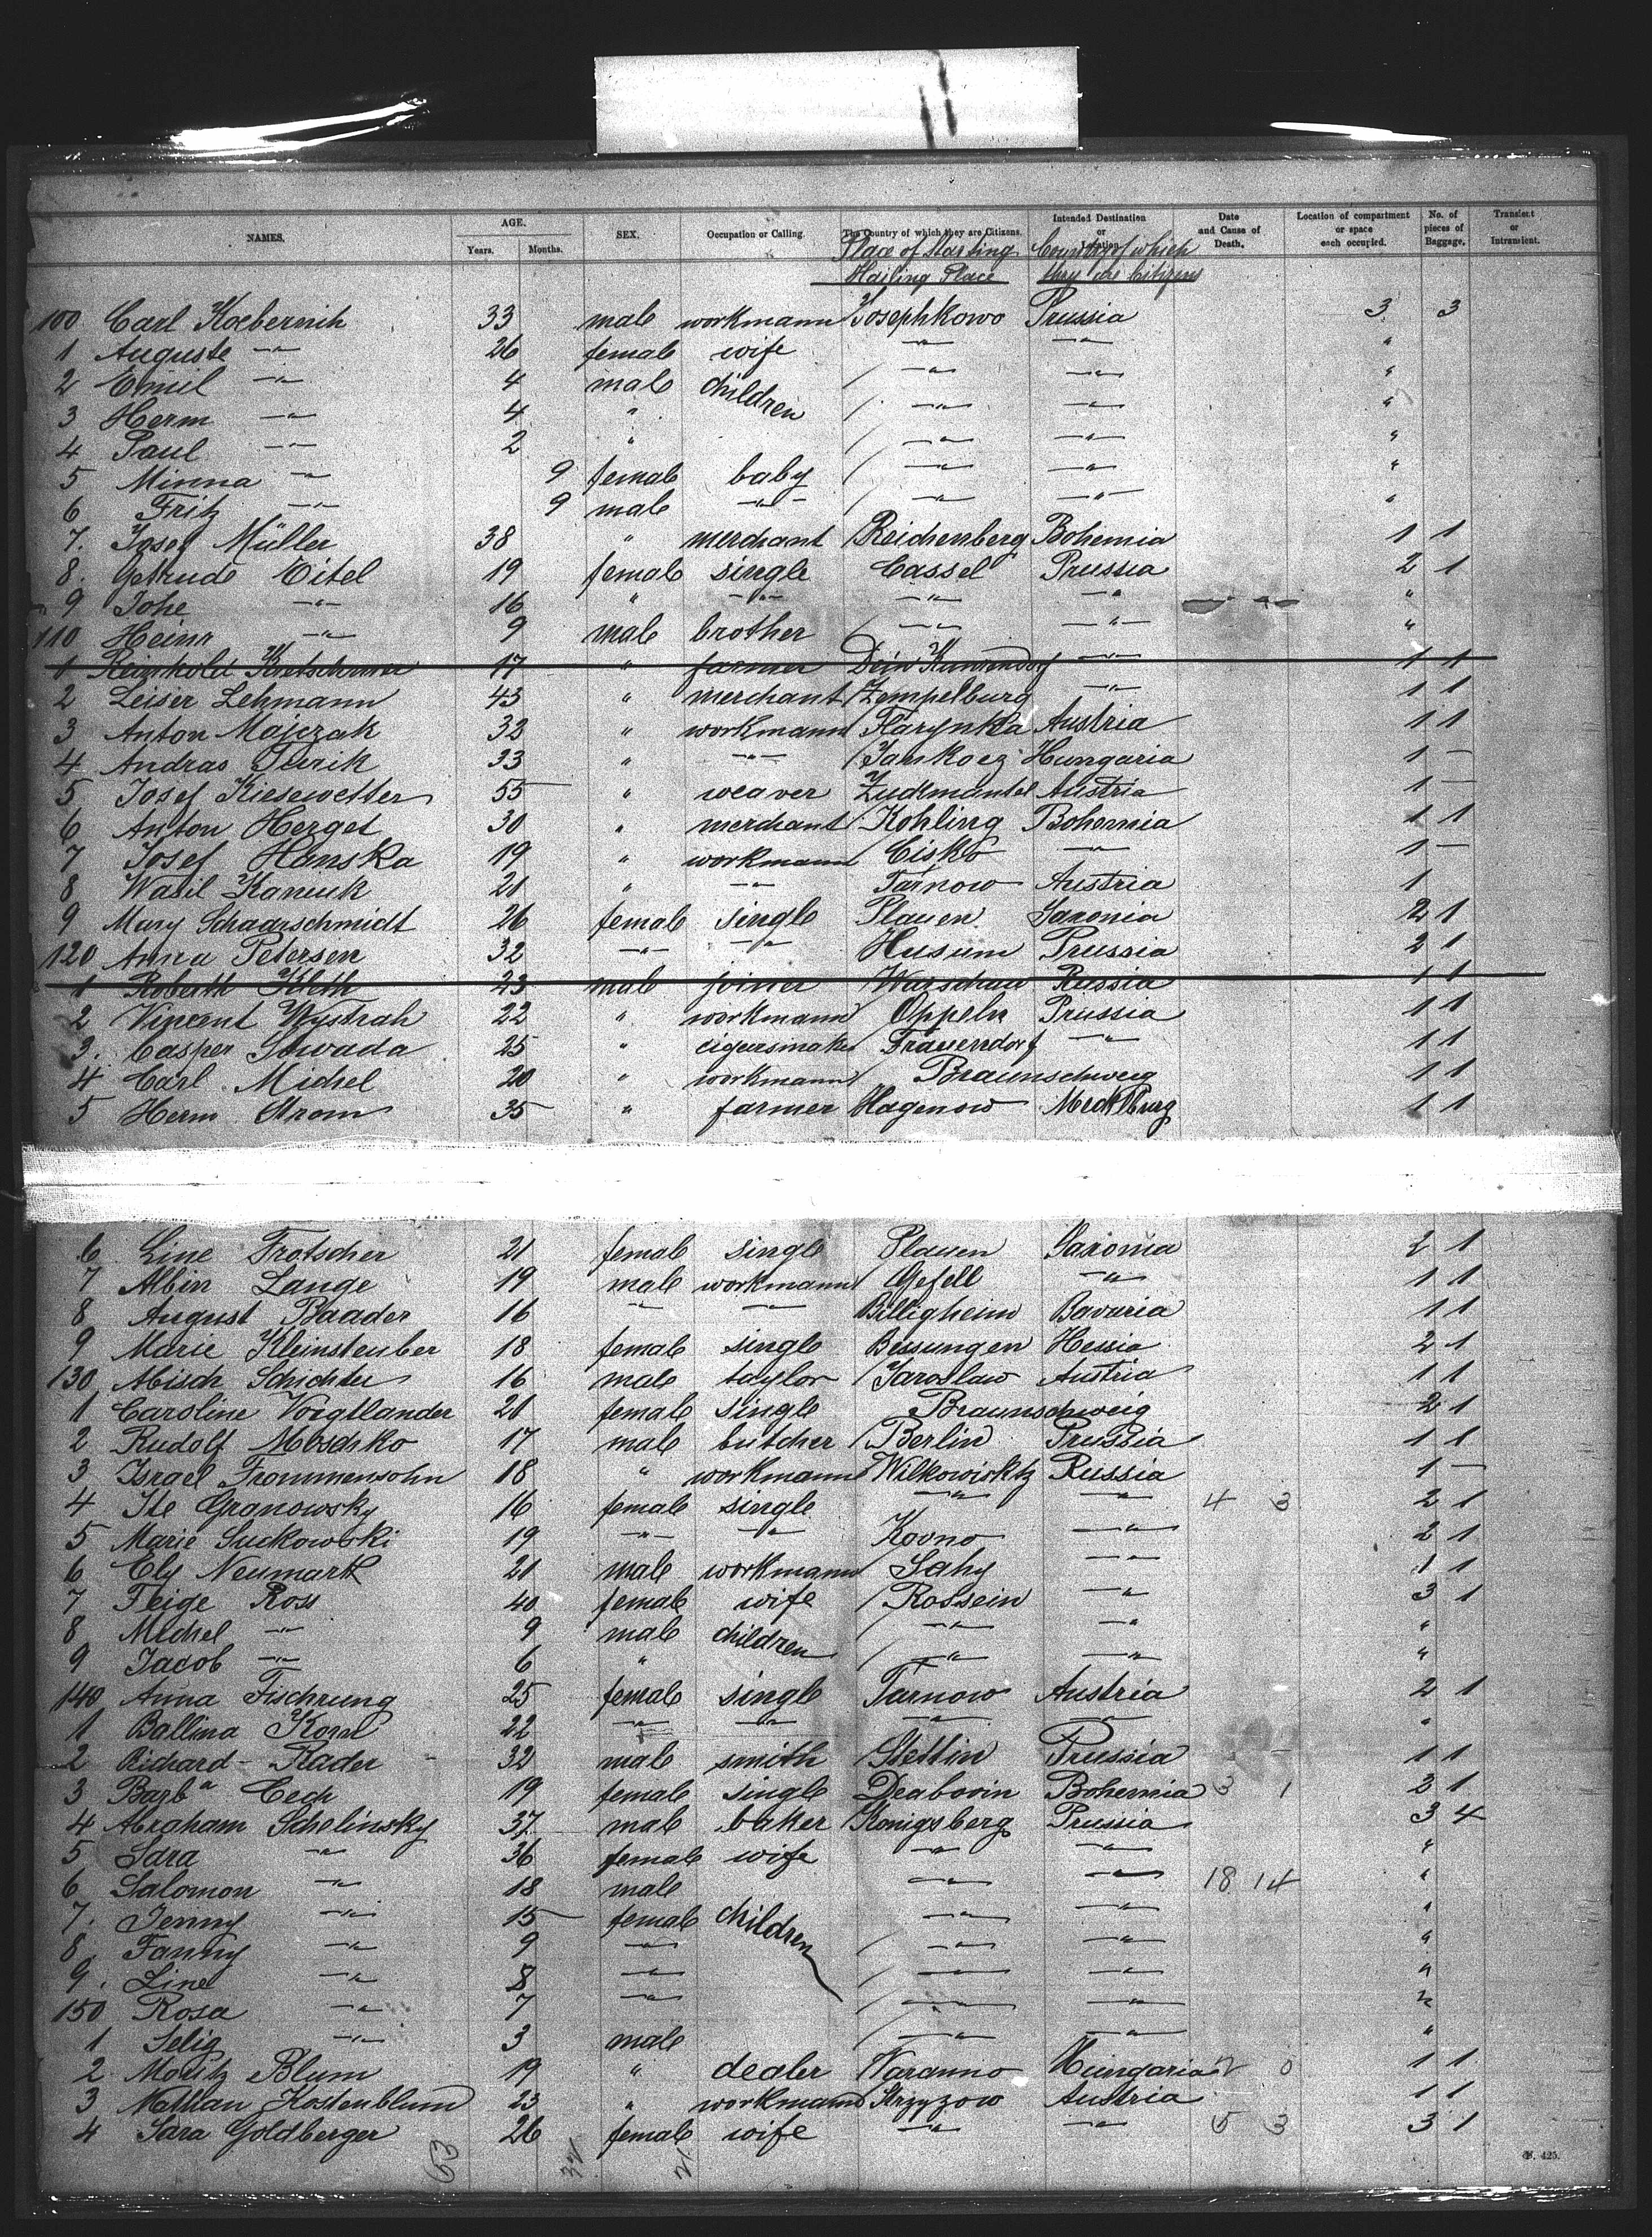 NAMES. AGE. Years. Months. SEX. Occupation or Calling. The Country of which they are Citizens. Intended Destination or Location. Date and Cause of Death. Location of compartment or space each occupied. No. of pieces of Baggage. Transient or Intransient.
Place of Starting Country of which
Hailing Place they are Citizens
100 Carl Koebernik 33 male workmann Josephkowo Prussia 3 3
1 Auguste -"- 26 female wife -"- -"- "
2 Emil -"- 4 male children -"- -"- "
3 Herm -"- 4 " -"- -"- "
4 Paul -"- 2 " -"- -"- "
5 Minna -"- 9 female baby -"- -"- "
6 Fritz -"- 9 male -"- -"- -"- "
7. Josef Müller 38 " merchant Reichenberg Bohemia 1 1
8. Getrude Eitel 19 female single Cassel Prussia 2 1
9 Johe -"- 16 " -"- -"- -"- "
110 Heinr -"- 9 male brother -"- -"- "
1 Reinhold Kretschmer 17 " farmer Kunzendorf -"- 1 1
2 Leiser Lehmann 43 " merchant Zempelburg -"- 1 1
3 Anton Majczak 32 " workmann Florynka Austria 1 1
4 Andras Jurik 33 " -"- Jankocz Hungaria 1 -
5 Josef Kiesewetter 55 " weaver Zuckmantel Austria 1 -
6 Anton Herget 30 " merchant Kohling Bohemia 1 1
7 Josef Hanska 19 " workmann Cisko -"- 1 -
8 Wasil Kaniuk 21 " -"- Tarnow Austria 1
9 Mary Schaarschmidt 26 female single Plauen Saxonia 2 1
120 Anna Petersen 32 -"- -"- Husum Prussia 2 1
1 Roberth Kleth 23 male joiner Warschau Russia 1 1
2 Vincent Wystrah 22 " workmann Oppeln Prussia 1 1
3. Casper Sowada 25 " cigarsmaker Frauendorf -"- 1 1
4 Carl Michel 20 " workmann Braunschweig 1 1
5 Herm. Krom 35 " farmer Hagenow Mecklburg 1 1
6 Line Trotscher 21 female single Plauen Saxonia 2 1
7 Albin Lange 19 male workmann Gefell -"- 1 1
8 August Baader 16 -"- -"- Billigheim Bavaria 1 1
9 Marie Kleinsteuber 18 female single Bessungen Hessia 2 1
130 Abisch Schichter 16 male taylor Jaroslaw Austria 1 1
1 Caroline Voigtlander 21 female single Braunschweig 2 1
2 Rudolf Meschko 17 male butcher Berlin Prussia 1 1
3 Israel Frommensohn 18 " workmann Wilkowisktz Russia 1 -
4 Ite Granowsky 16 female single -"- -"- 4 3 2 1
5 Marie Suckowski 19 -"- -"- Kovno -"- 2 1
6 Ely Neumark 21 male workmann Sahy -"- 1 1
7 Feige Ross 40 female wife Rossein -"- 3 1
8 Michel -"- 9 male children -"- -"- "
9 Jacob -"- 6 " -"- -"- "
140 Anna Fischrung 25 female single Tarnow Austria 2 1
1 Ballina Korn 22 -"- -"- -"- -"- "
2 Richard Rader 32 male smith Stettin Prussia 1 1
3 Barba Cech 19 female single Deabovin Bohemia 3 1 2 1
4 Abraham Schelinsky 37 male baker Konigsberg Prussia 3 4
5 Sara -"- 36 female wife -"- -"- "
6 Salomon -"- 18 male -"- -"- 18 14 "
7. Jenny -"- 15 female children -"- -"- "
8. Fanny -"- 9 -"- -"- -"- "
9. Line -"- 8 -"- -"- -"- "
150 Rosa -"- 7 -"- -"- -"- "
1 Selig -"- 3 male -"- -"- "
2 Moritz Blum 19 " dealer Varanno Hungaria 2 0 1 1
3 Nathan Kostenblum 23 " workmann Strzyzow Austria 1 1
4 Sara Goldberger 26 female wife -"- -"- 5 3 3 1
32 21
N. 425.